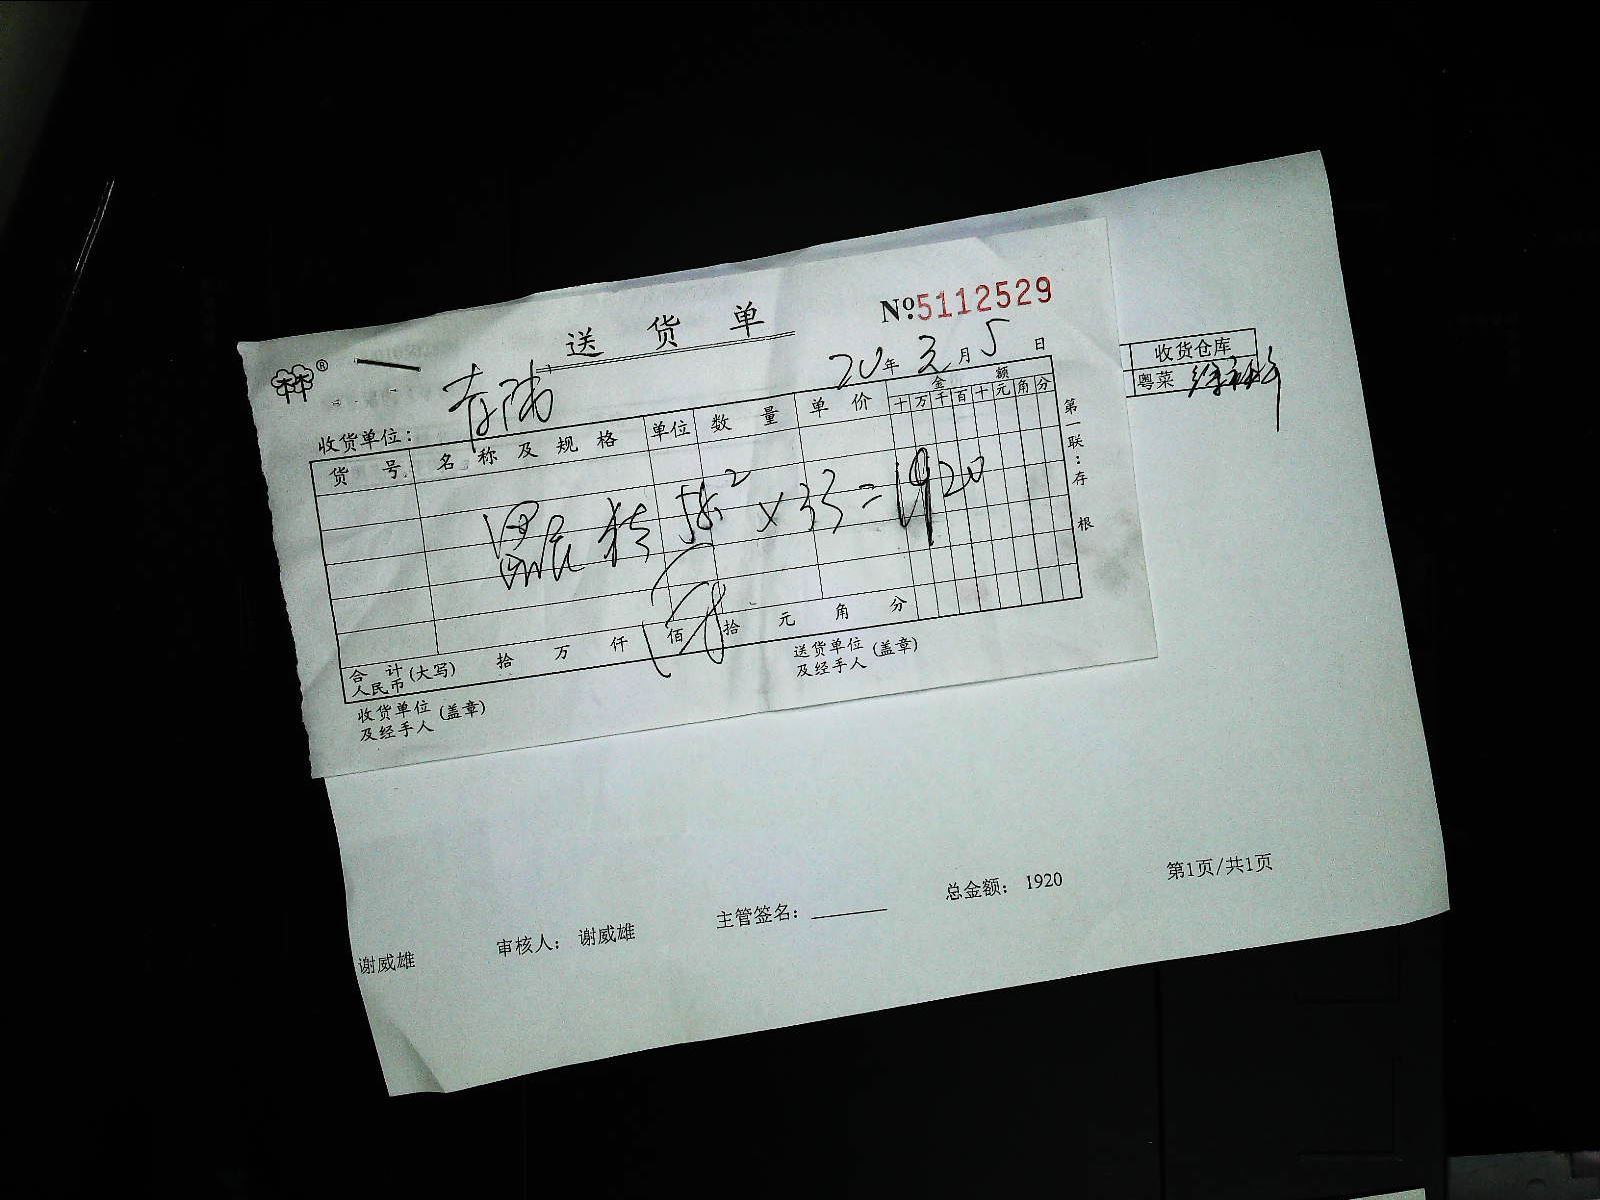 送货单 №5112529
20年元月5日
收货单位：
货号 名称及规格 单位 数量 单价 金额
十万千百十元角分
58² × 33 = 1920
合计人民币(大写) 拾 万 仟 佰 拾 元 角 分
收货单位及经手人(盖章) 送货单位及经手人(盖章)
第一联：存根
收货仓库
粤菜
谢威雄 审核人： 谢威雄 主管签名： 总金额： 1920 第1页/共1页